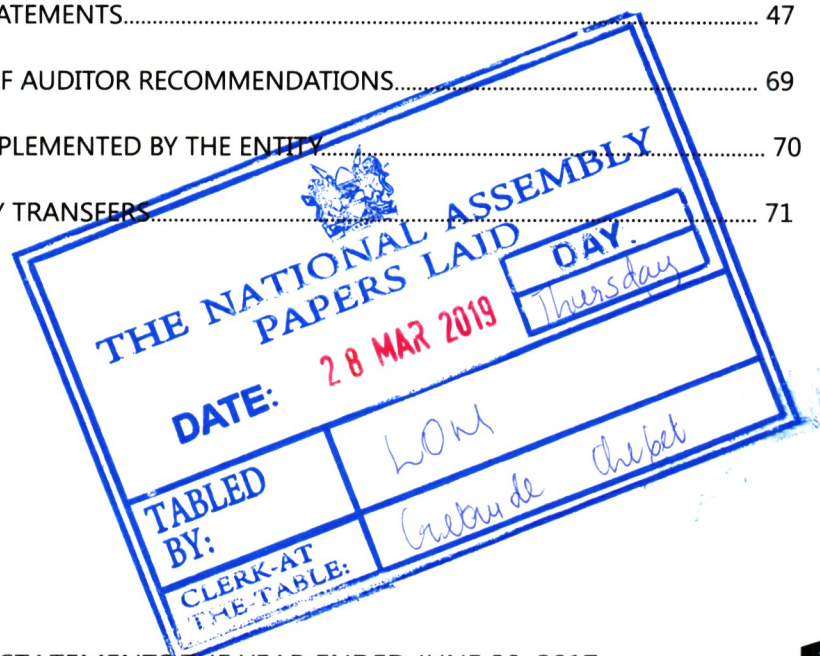 ATEMENTS.......................................................................... 47
F AUDITOR RECOMMENDATIONS.......................................................... 69
PLEMENTED BY THE ENTITY.......................................................... 70
Y TRANSFERS.......................................................................... 71
THE NATIONAL ASSEMBLY
PAPERS LAID
DAY.
Thursday
DATE: 28 MAR 2019
TABLED BY:
LOM
CLERK-AT THE-TABLE:
Chebet